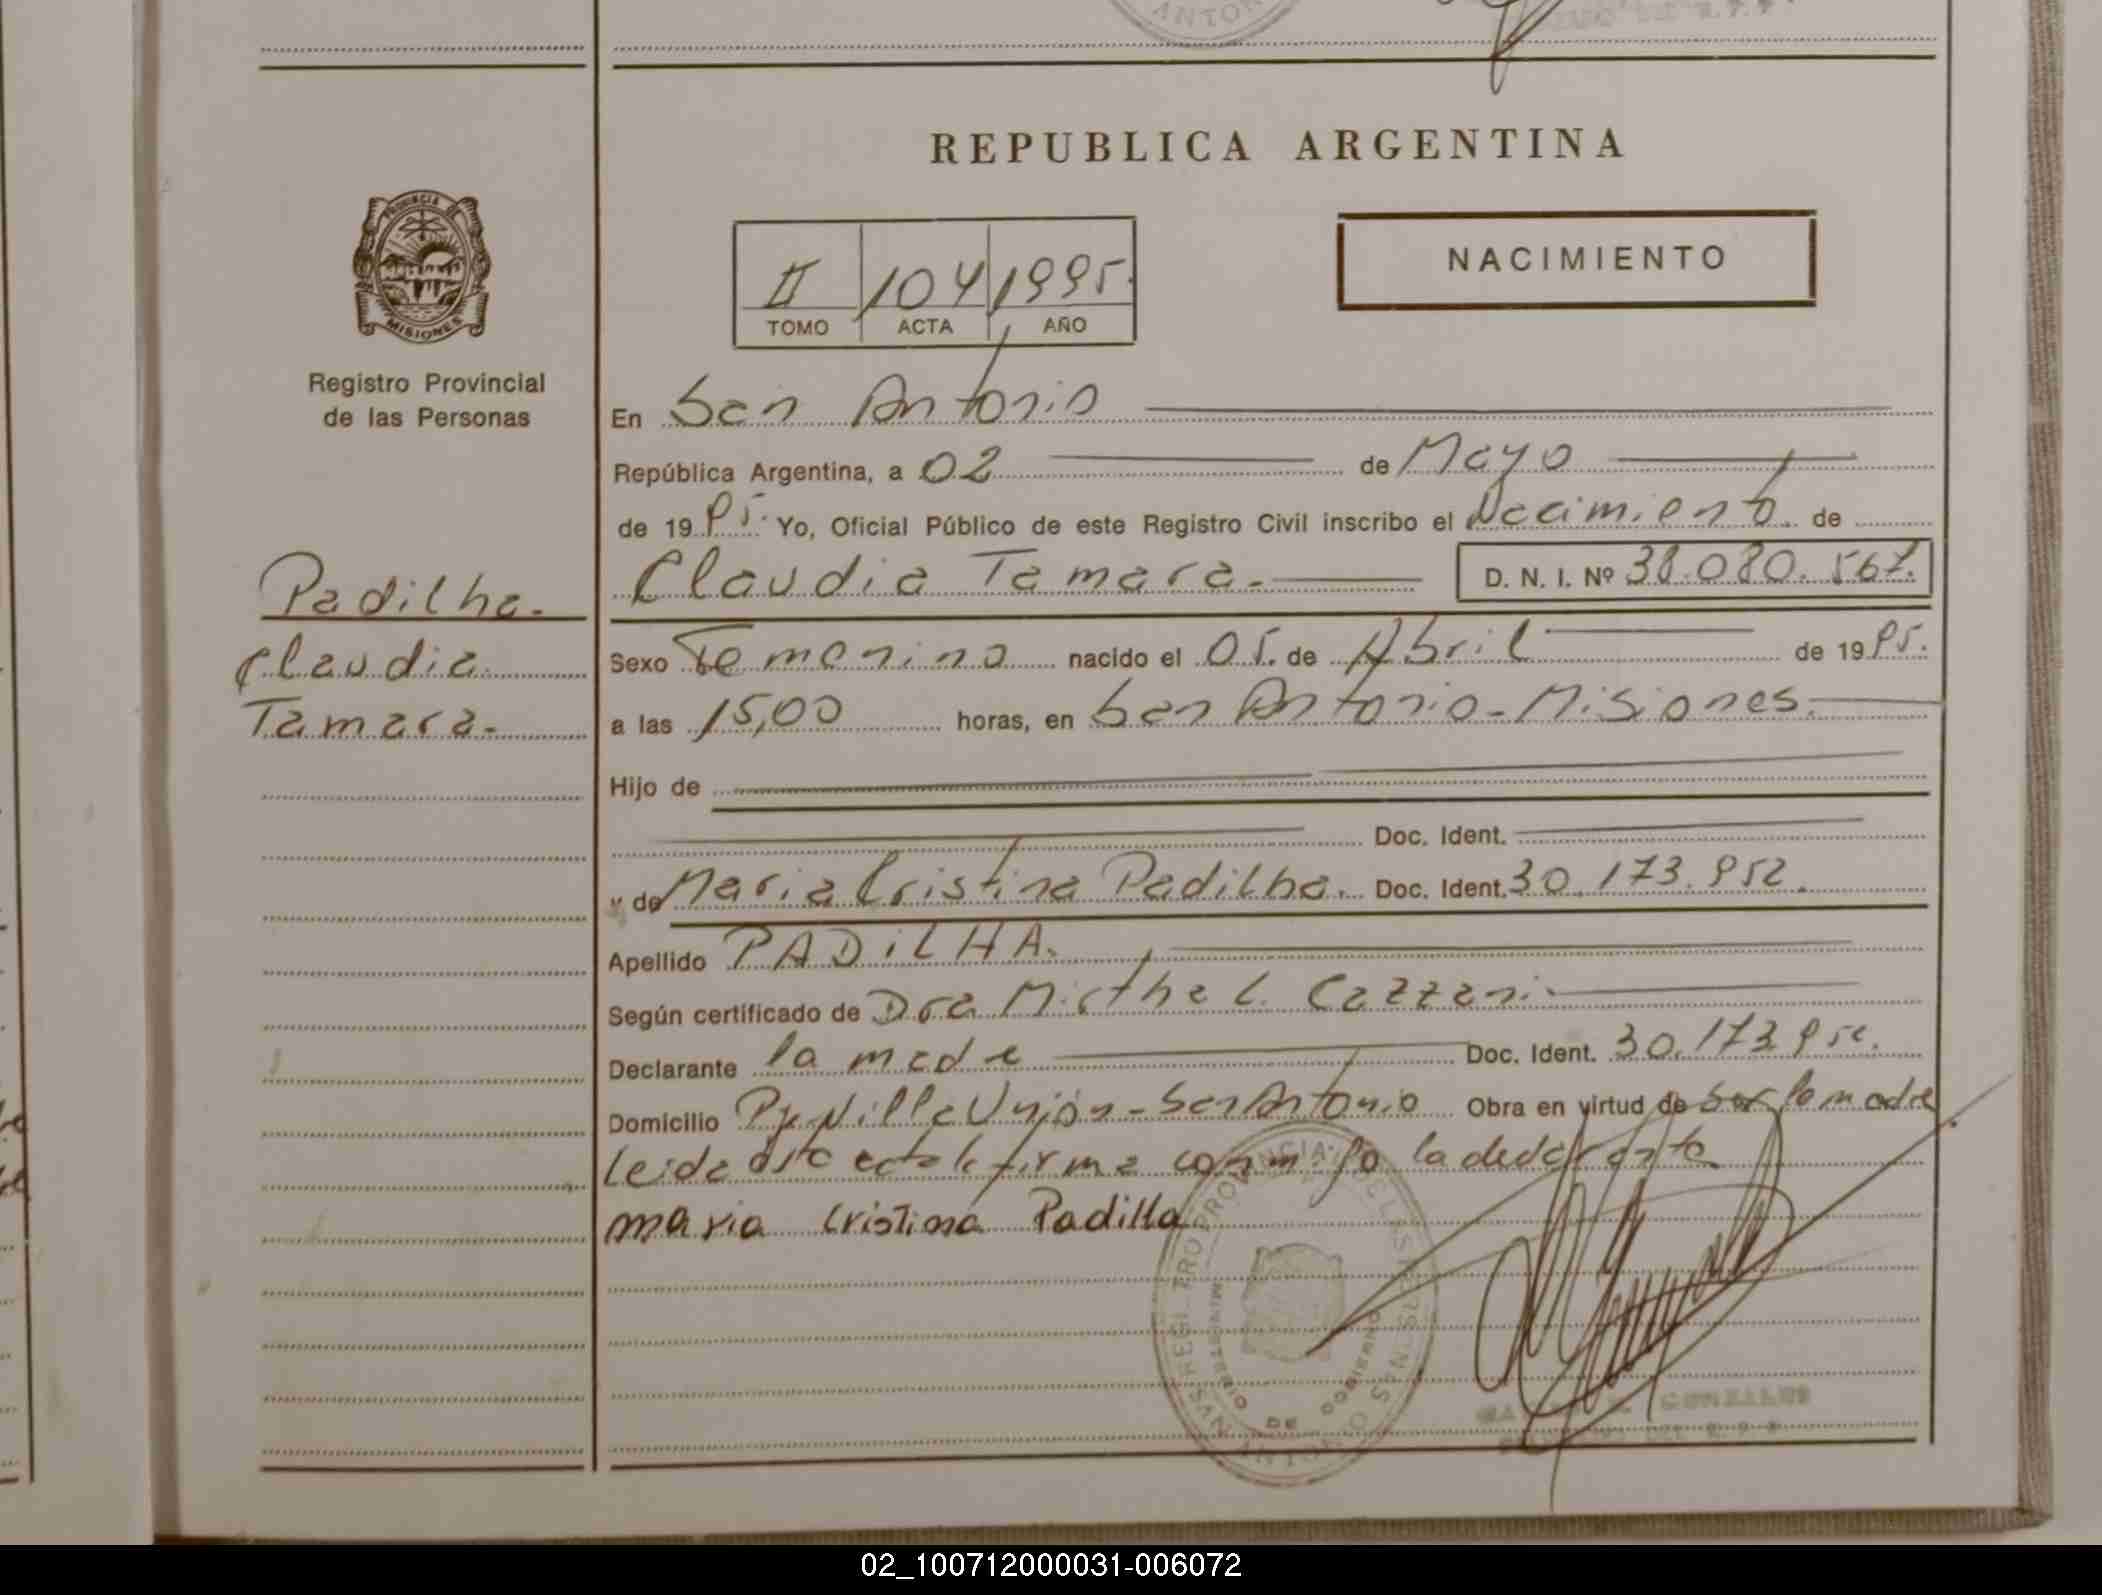 ANTON
REPUBLICA ARGENTINA
PROVINCIA DE
MISIONES
NACIMIENTO
II 104 1995.
TOMO ACTA AÑO
Registro Provincial
de las Personas
En San Antonio
República Argentina, a 02 de Mayo
de 1995. Yo, Oficial Público de este Registro Civil inscribo el Nacimiento de
Claudia Tamara.- D. N. I. Nº 38.080.567.
Padilha.
Claudia
Tamara.-
Sexo Femenino nacido el 05. de Abril de 1995.
a las 15,00 horas, en San Antonio-Misiones.
Hijo de
Doc. Ident.
y de Maria Cristina Padilha. Doc. Ident. 30.173.952.
Apellido PADILHA.
Según certificado de Dra Mirtha L. Cazzani.
Declarante la madre Doc. Ident. 30.173.952.
Domicilio Pje Villa Unión-San Antonio Obra en virtud de ser la madre
Leida esta acta la firma conmigo la declarante
maria Cristina Padilla
REGISTRO PROVINCIAL DE LAS PERSONAS
MINISTERIO DE GOBIERNO
SAN ANTONIO
GONZALES
02_100712000031-006072